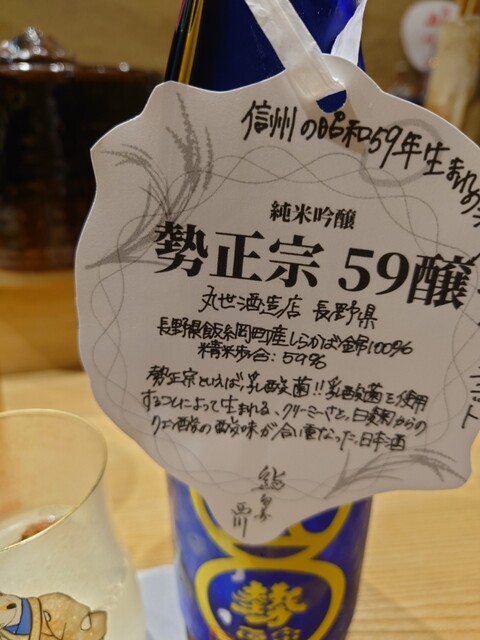 信州の昭和59年生まれの
純米吟醸
勢正宗 59醸
丸世酒造店 長野県
長野県飯綱町産しらかば錦100%
精米歩合:59%
勢正宗といえば、乳酸菌!!乳酸菌を使用
することによって生まれる、クリーミーさと、白麹からの
クエン酸の酸味が合い重なった、日本酒
西川
勢